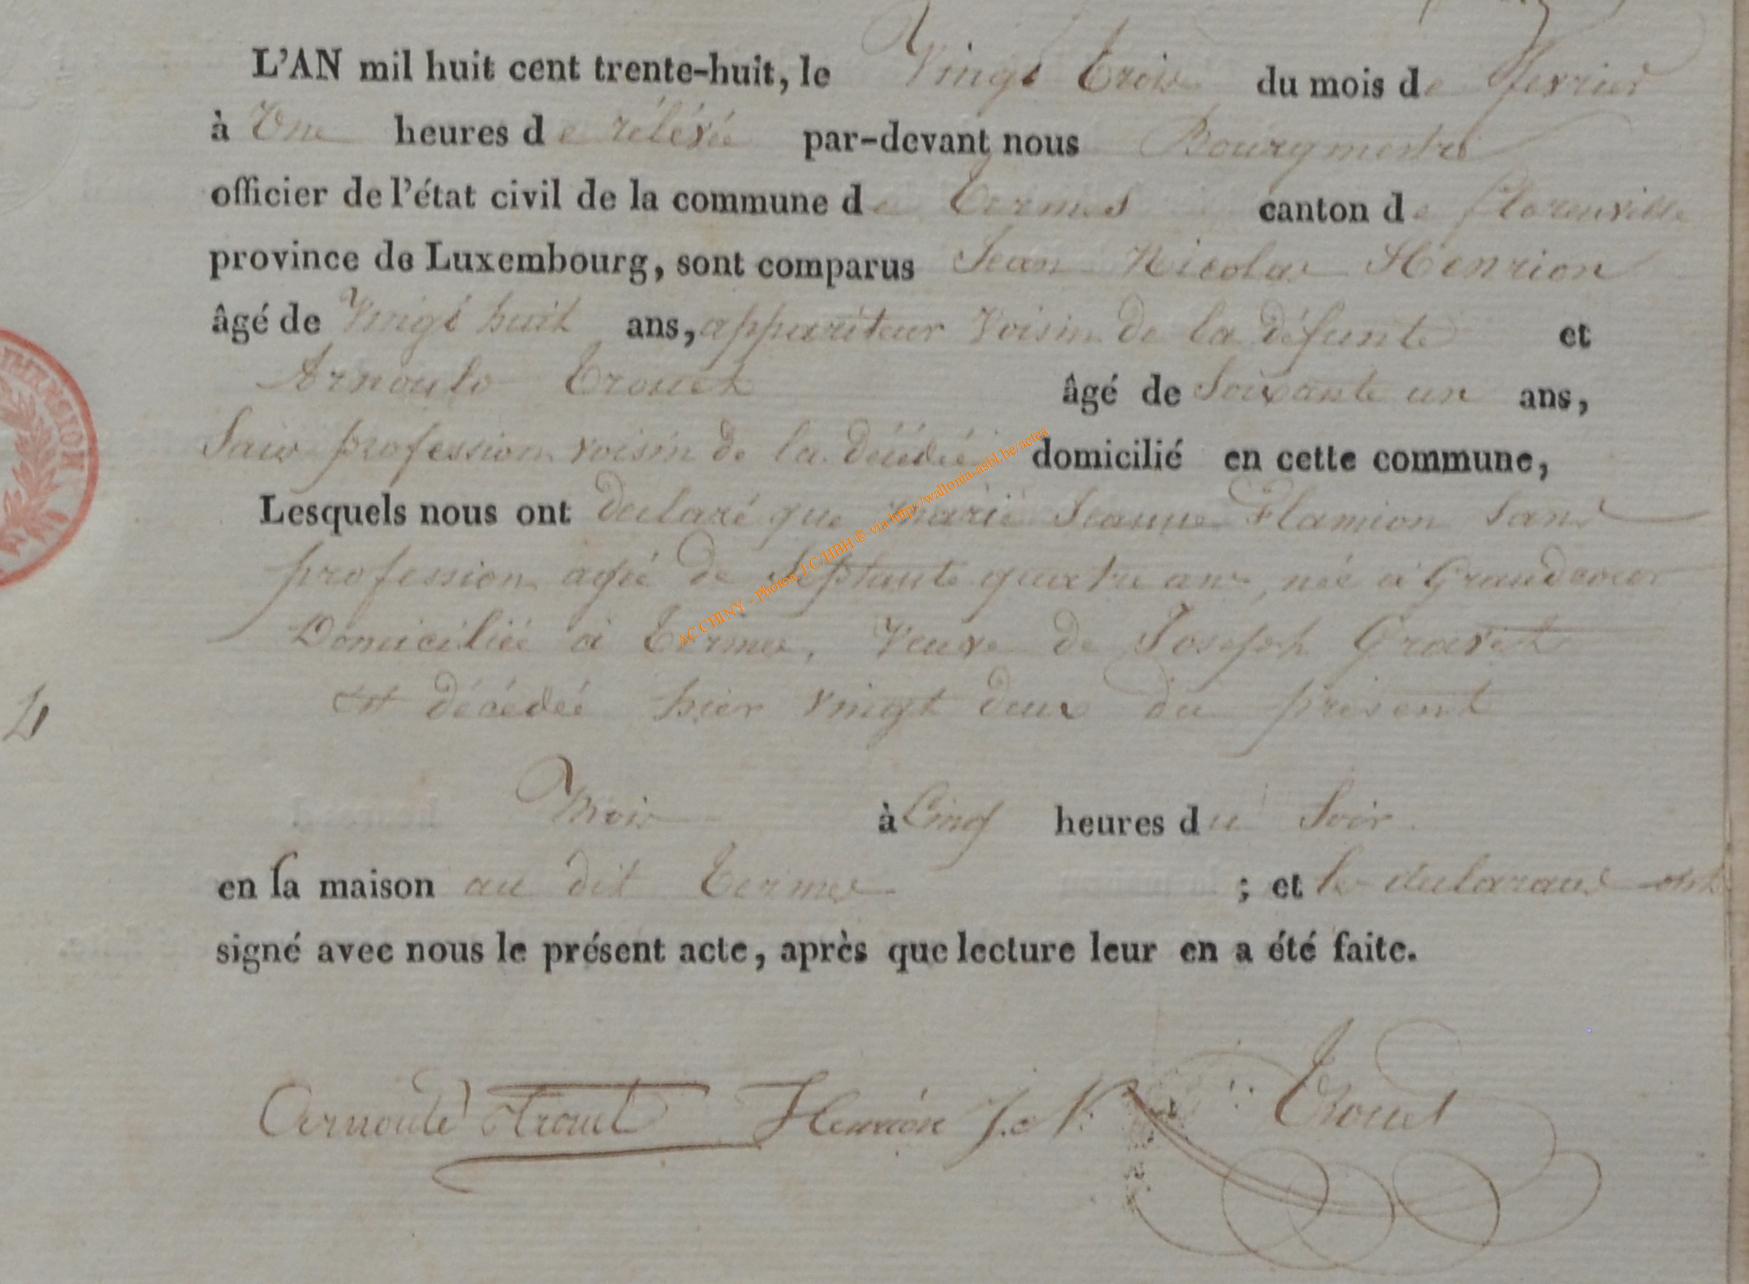 L'AN mil huit cent trente-huit, le Vingt trois du mois de fevrier
à Une heures de rélévée par-devant nous Bourgmestre
officier de l'état civil de la commune de Termes canton de florenville
province de Luxembourg, sont comparus Jean Nicolas Henrion
âgé de Vingt huit ans, appariteur Voisin de la défunte et
Arnould Trouet âgé de Soixante un ans,
Sans profession voisin de la décédée domicilié en cette commune,
Lesquels nous ont declaré que marie Jeanne Flamion sans
profession agée de Septante quatre ans, née à Grandcour
Domiciliée à Termes, Veuve de Joseph Gravet
est décédée hier vingt deux du présent
4
Mois à Cinq heures du Soir
en sa maison au dit Termes ; et les declarans ont
signé avec nous le présent acte, après que lecture leur en a été faite.
Arnould trouet Henrion J. N. Trouet
AC CHINY - Photos J C HBH ® via http/wallonia-asbl.be/actes